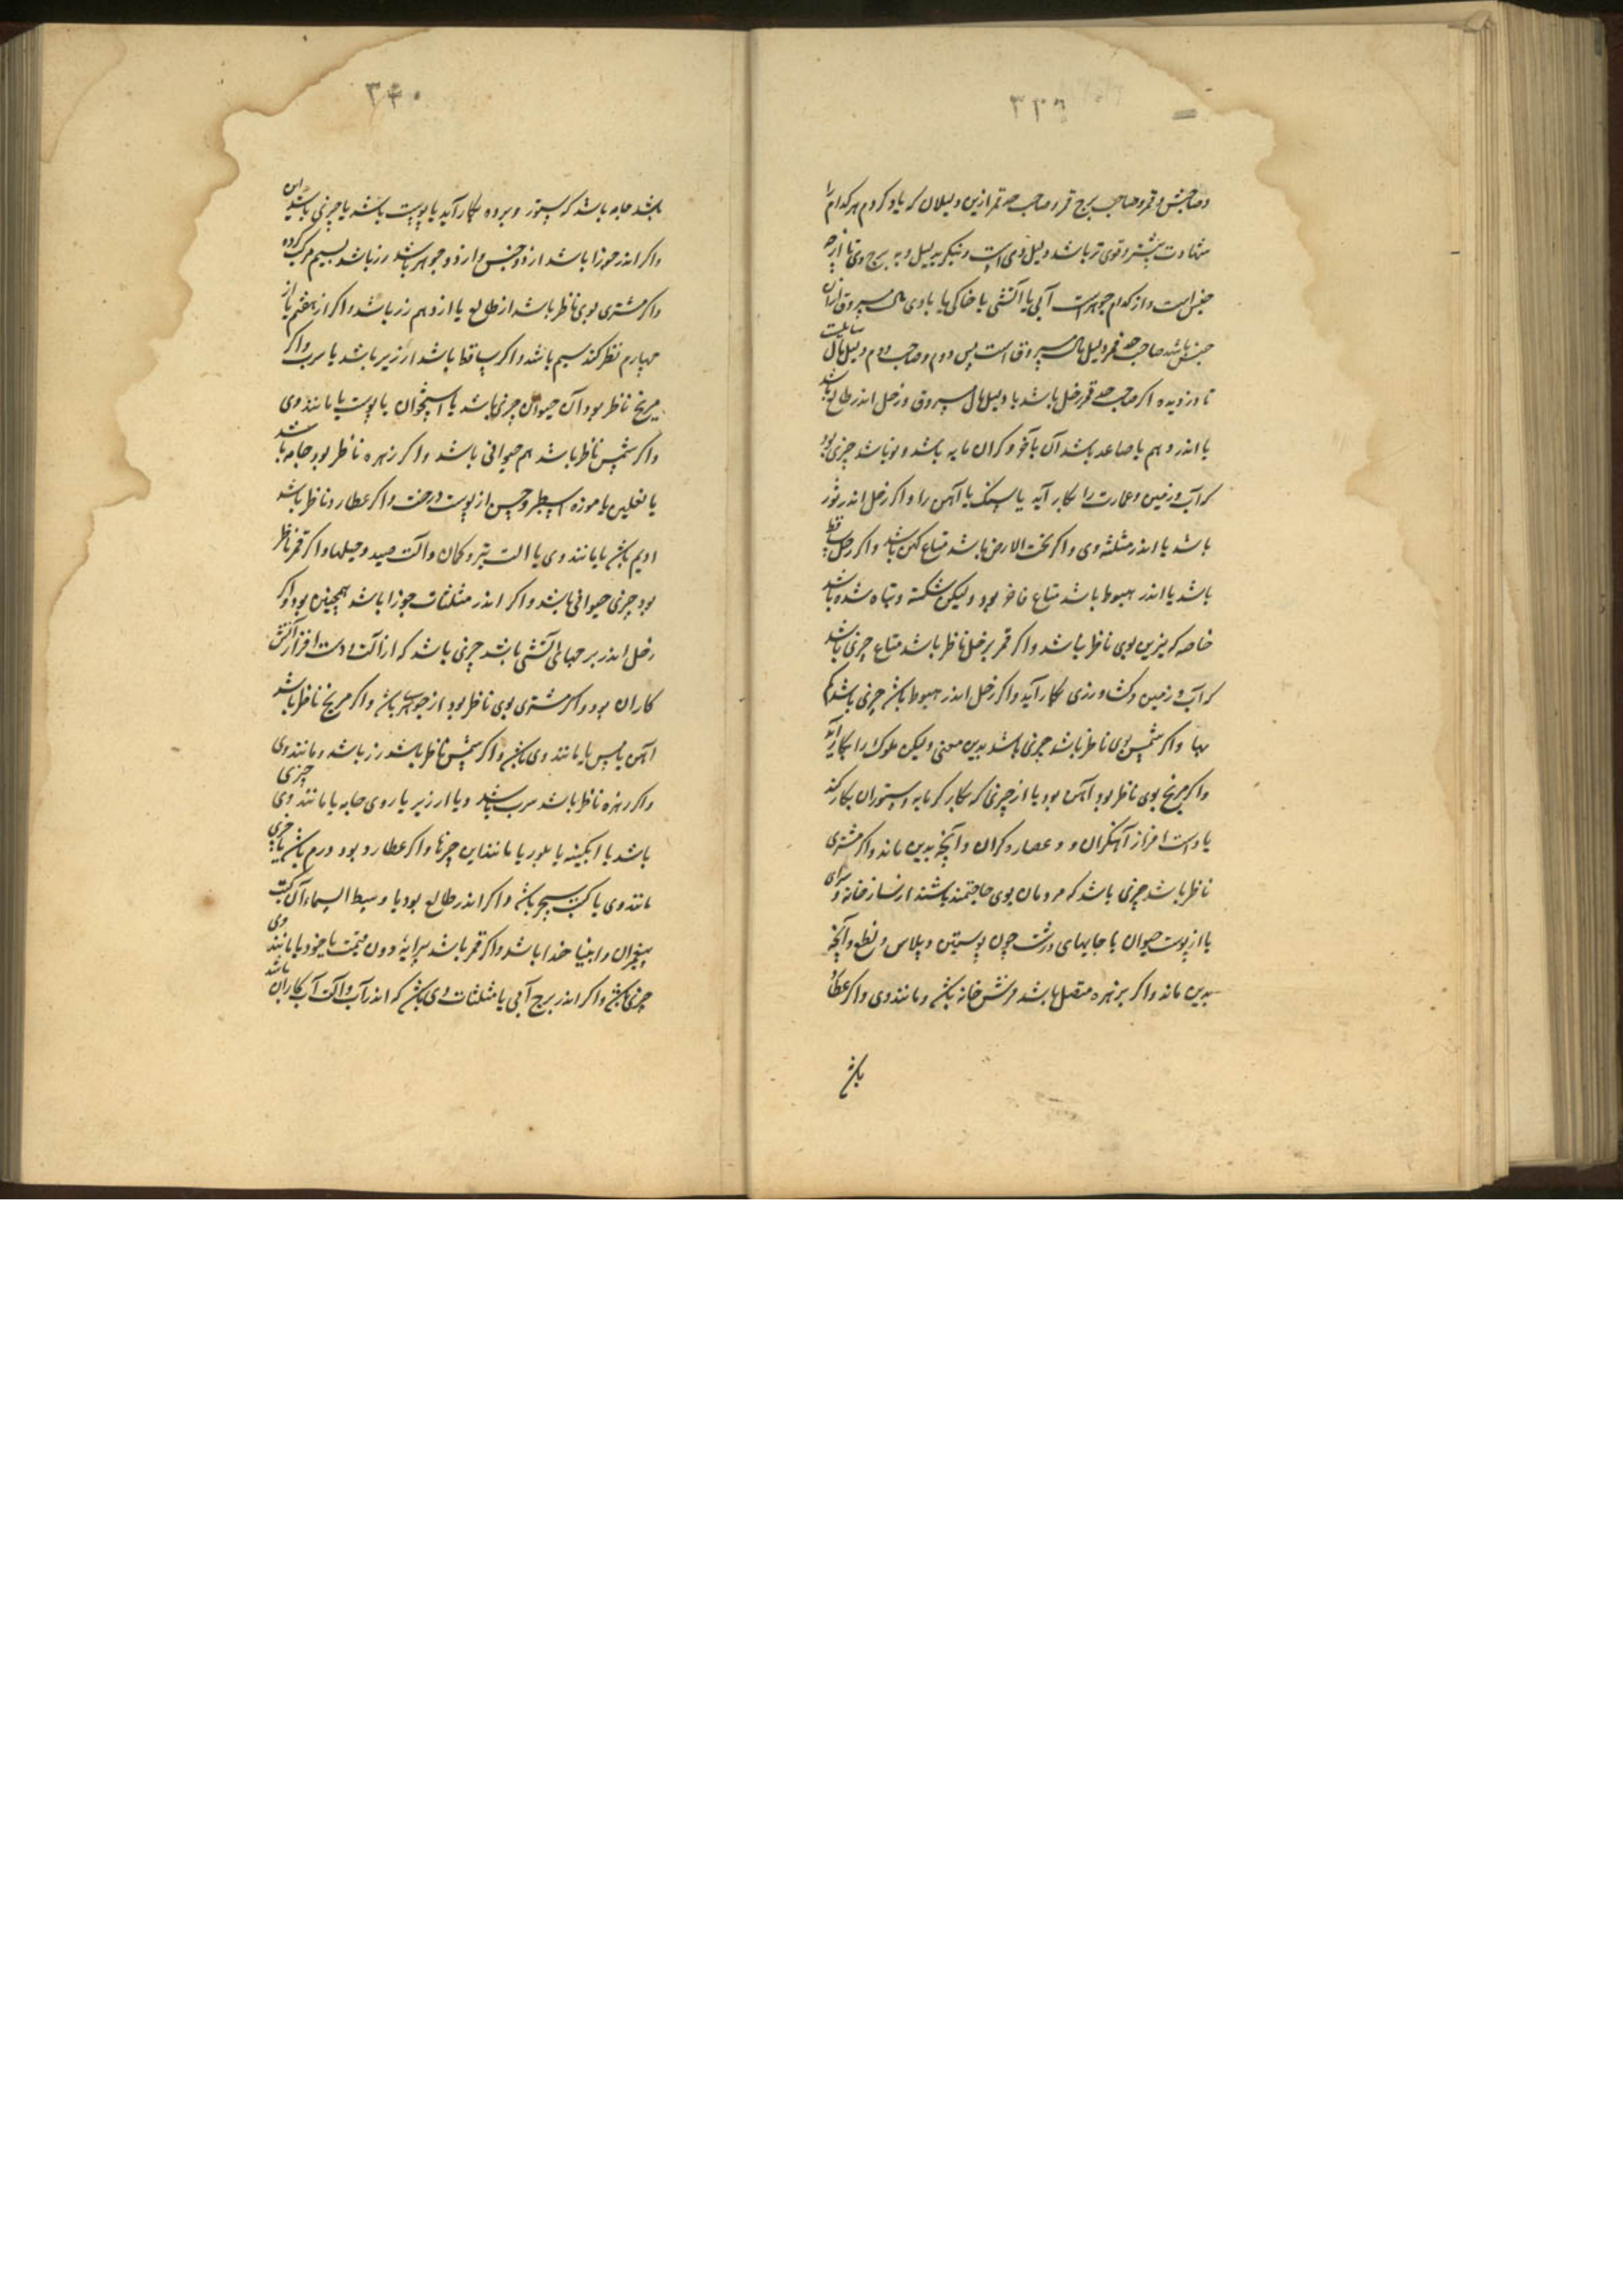 ۳۳۹
و صاحبش و قمر و صاحب برج قمر و صاحب حد قمر ازین دلیلان که یاد کردم هر کدام را
شهادت بیشتر و قوی تر باشد دلیل وی است و بنگر بدلیل و به برج وی تا از چه
جنس است و از کدام جوهرست آبی یا آتشی یا خاکی یا بادی مال مسروق از آن
جنس باشد صاحب حد قمر دلیل مال مسروق است پس دوم و صاحب دوم دلیل مال
نا دزدیده اگر صاحب حد قمر زحل باشد یا دلیل مال مسروق و زحل اندر طالع باشد
یا اندر دهم یا صاعد باشد آن با و گران مایه باشد و نو باشد چیزی بود
که آب و زمین و عمارت را بکار آید یا سنگ یا آهن را و اگر زحل اندر ثور
باشد یا اندر مثلثه وی و اگر تحت الارض باشد متاع کهن باشد و اگر زحل ساقط
باشد یا اندر هبوط باشد متاع فاخر بود ولیکن شکسته و تباه شده باشد
خاصه که بوی ناظر باشد و اگر قمر بزحل ناظر باشد متاع چیزی باشد
که آب و زمین و کشاورزی بکار آید و اگر زحل اندر هبوط باشد چیزی باشد کم
بها و اگر شمس بوی ناظر باشد چیزی باشد بدین معنی ولیکن ملوک را بکار آید
و اگر مریخ بوی ناظر بود آهن بود یا از چیزی که بکار گرمابه و ستوران بکار کنند
یا دست افزار آهنگران و و عصاره گران و آنچه بدین ماند و اگر مشتری
ناظر باشد چیزی باشد که مردمان بوی حاجتمند باشند از ساز خانه و سرای
یا از پوست حیوان یا جامهای درشت چون پوستین و پلاس و نطع و آنچه
بدین ماند و اگر بزهره متصل باشد فرش خانه باشد و مانند وی و اگر عطارد
باشد
۳۴۰
باشد جامه باشد که ستور و برده بکار آید یا پوست باشد یا چیزی باشد این
و اگر اندر جوزا باشد از دو جنس و از دو جوهر باشد زر باشد بسیم مرکب کرده
و اگر مشتری بوی ناظر باشد از طالع یا از دهم زر باشد و اگر از هفتم یا از
چهارم نظر کند سیم باشد و اگر ساقط باشد ارزیر باشد یا سرب و اگر
مریخ ناظر بود آن حیوان چیزی باشد یا استخوان یا پوست یا مانند وی
و اگر شمس ناظر باشد هم حیوانی باشد و اگر زهره ناظر بود جامه باشد
یا نعلین یا موزه از پوست درخت و اگر عطارد ناظر باشد
ادیم باشد یا مانند وی یا الت تیر و کمان و آلت صید و حیلها و اگر قمر ناظر
بود چیزی حیوانی باشد و اگر اندر مثلثات جوزا باشد همچنین بود و اگر
زحل اندر برجهای آتشی باشد چیزی باشد که از آلت و دست افزار آتش
کاران بود و اگر مشتری بوی ناظر بود از جواهر باشد و اگر مریخ ناظر باشد
آهن یا مس یا مانند وی باشد و اگر شمس ناظر باشد زر باشد و مانند وی
و اگر زهره ناظر باشد سرب باشد و یا ارزیر یا روی جامه یا مانند وی چیزی
باشد یا ابگینه یا بلور یا مانند این چیزها و اگر عطارد بود درم باشد یا چیزی
مانند وی یا کتب سحر باشد و اگر اندر طالع بود یا وسط السماء آن کتب
پیغمبران و انبیا خدا باشد و اگر قمر باشد پیرایه و دون قیمت یا خود یا مانند وی
چیزی باشد و اگر اندر برج آبی یا مثلثات وی باشد که اندر آب و آلت آب کاران باشد